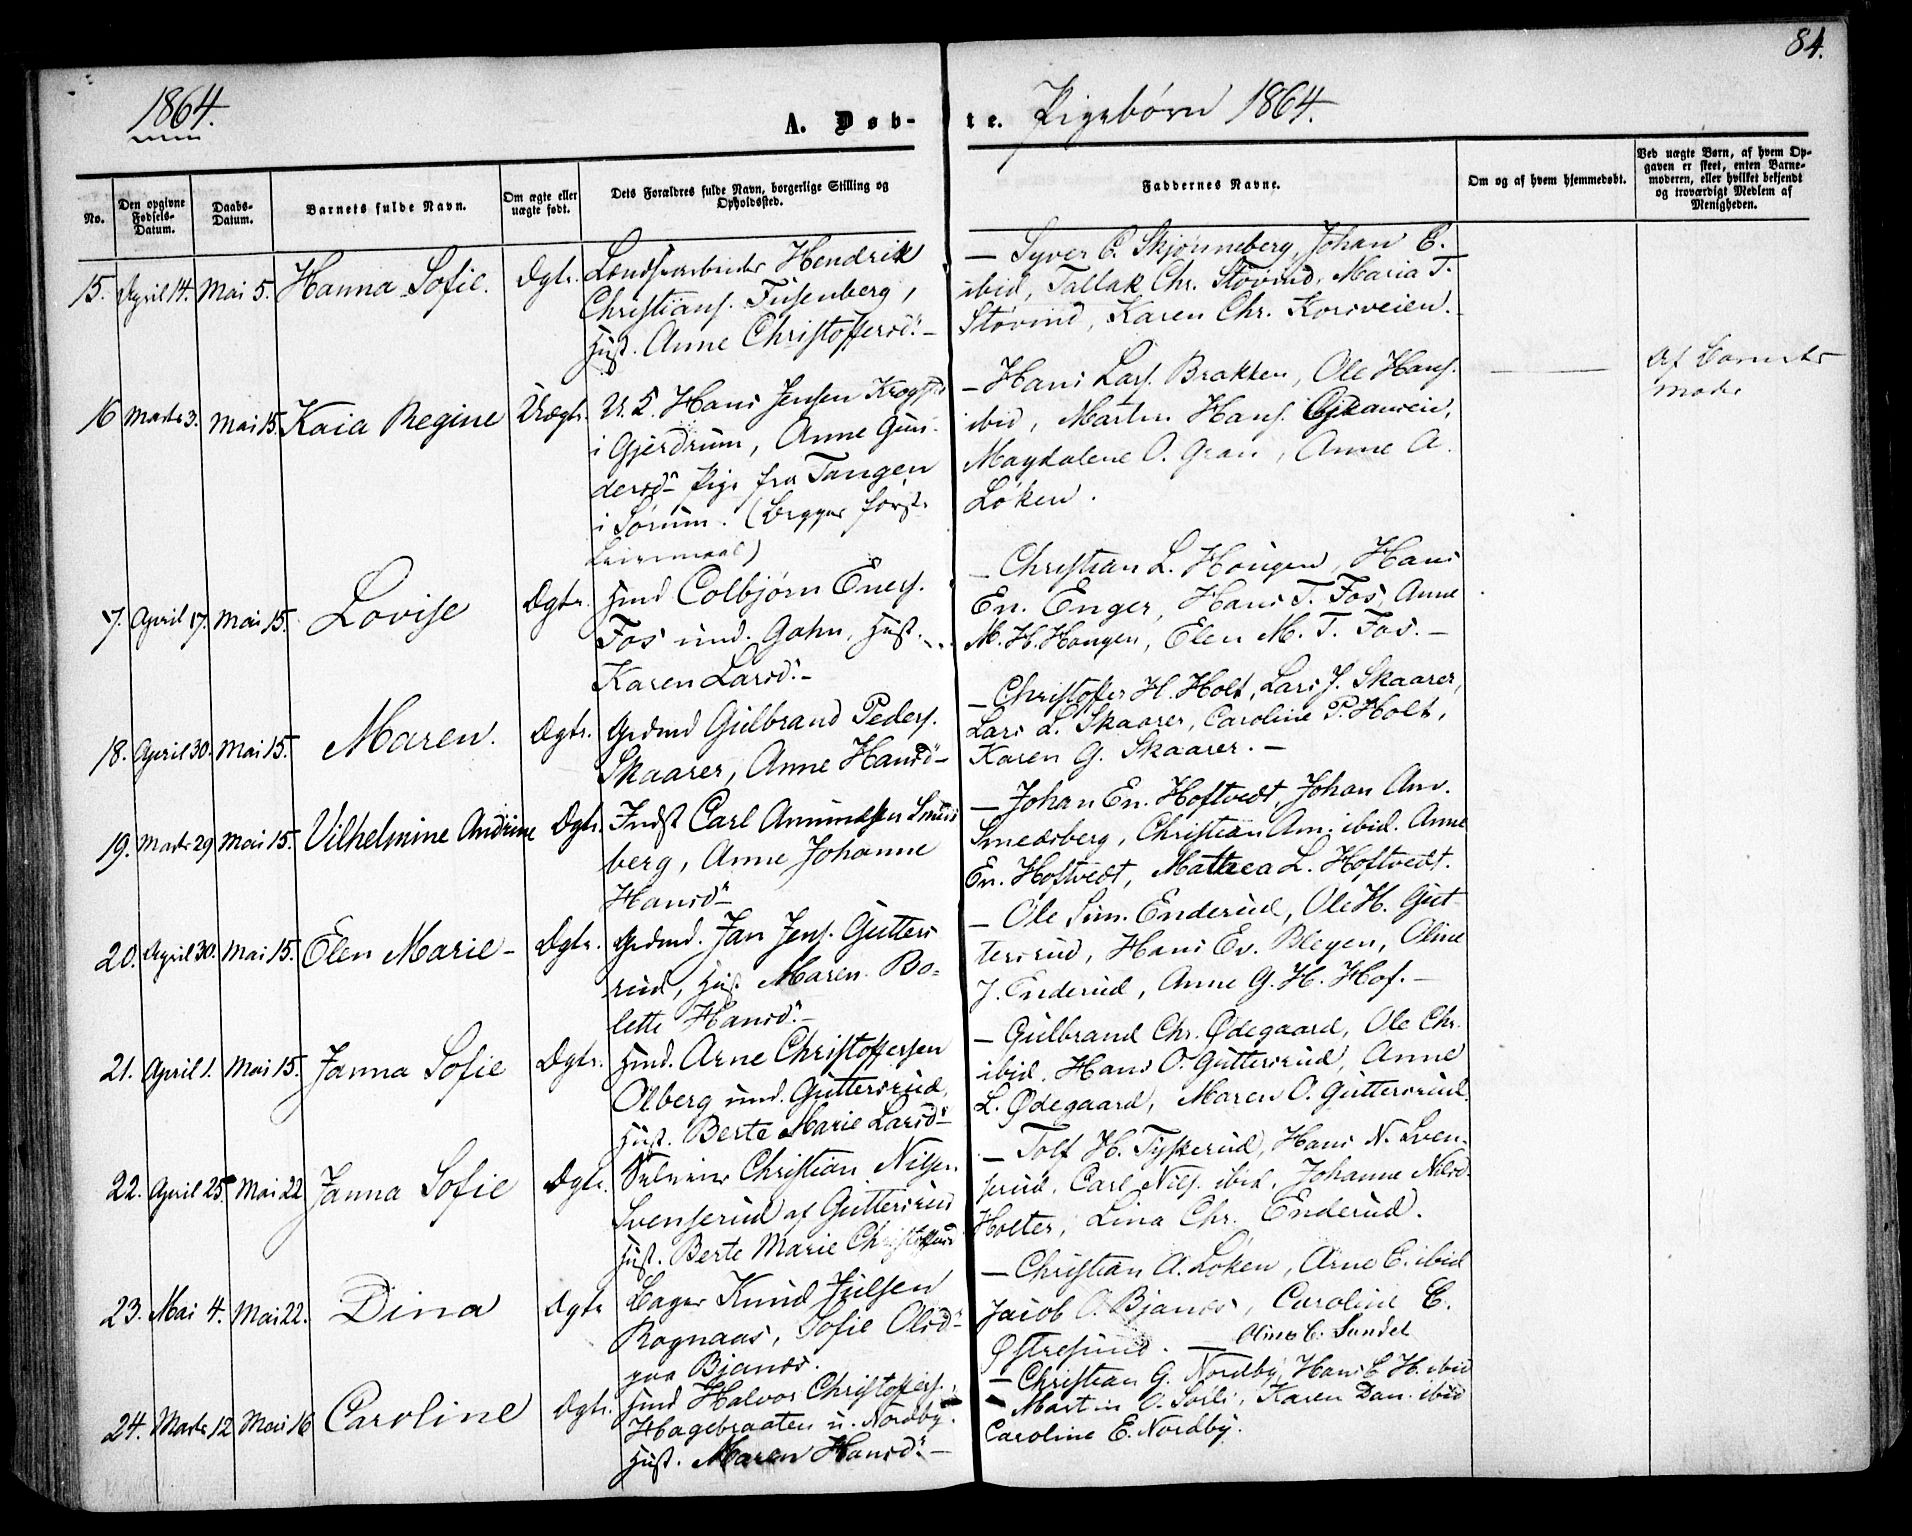 84.
1864.
A. Døb-
te. Pigebørn 1864.
No.
Den opgivne Fødsels-Datum.
Daabs-Datum.
Barnets fulde Navn.
Om ægte eller uægte født.
Dets Forældres fulde Navn, borgerlige Stilling og Opholdssted.
Faddernes Navne.
Om og af hvem hjemmedøbt.
Ved uægte Børn, af hvem Op-
gaven er skeet, enten Barne-
moderen, eller hvilket bekjendt
og troværdigt Medlem af
Menigheden.
15. April 14. Mai 5. Hanna Sofie. Dgtr.
Hendrik
Christians. Tusenberg,
Hust. Anne Christoffersd. –
– Syver C. Skjønneberg, Johan C.
ibid, Tallak Chr. Støvind, Maria T.
Støvind, Karen Chr. Korsveien. –
16 Marts 3. Mai 15. Kaia Regine Uægt.
U. S. Hans Jensen Krogst
i Gjerdrum, Anne Gun-
dersd. Pige fra Tangen
i Sørum. (begges første
Leiermaal)
– Hans Lars. Brakken, Ole Hans.
ibid, Martin Hans.
Magdalene O. Gran, Anne A.
Løken.
Af Barnets
Moder
7. April 17. Mai 15. Lovise Dgtr.
Hmd Colbjørn Eners.
Fos und. Gahn, Hust.
Karen Larsd. –
– Christian L. Hougen, Hans
En. Enger, Hans T. Fos, Anne
M. H. Hougen, Elen M. T. Fos. –
18. April 30. Mai 15. Maren. Dgtr.
Grdmd Gulbrand Peders.
Skaarer, Anne Hansd –
– Christoffer H. Holt, Lars J. Skaarer,
Lars L. Skaarer, Caroline P. Holt,
Karen G. Skaarer. –
19. Marts 29 Mai 15. Vilhelmine Andrine Dgtr.
Indst Carl Amundsen Smeds
berg, Anne Johanne
Hansd –
– Johan En. Hoftvedt, Johan Am.
Smedsberg, Christian Am. ibid. Anne
En. Hoftvedt, Mathea L. Hoftvedt.
20. April 30. Mai 15. Elen Marie – Dgtr.
Grdmd. Jan Jens. Gutters
rud, Hust. Maren Bo-
lette Hansd. –
– Ole Sim. Enderud, Ole H. Gut-
tersrud, Hans Ev. Bleyen, Oline
J. Enderud, Anne G. H. Hof. –
21. April 1. Mai 15. Janna Sofie Dgtr.
Hmd. Arne Christoffersen
Olberg und. Guttersrud,
Hust. Berte Marie Larsd –
– Gulbrand Chr. Ødegaard, Ole Chr.
ibid. Hans O. Guttersrud, Anne
L. Ødegaard, Maren O. Guttersrud.
22. April 25. Mai 22 Janna Sofie Dgtr.
Selveier Christian Nilsen
Svenserud af Guttersrud
Hust. Berte Marie Christoffersd
– Tolf H. Tyskerud, Hans N. Sven-
serud, Carl Nils. ibid, Johanne Nilsd.
Holter, Lina Chr. Enderud.
23. Mai 4. Mai 22. Dina Dgtr
Bager Knud Julsen
Rognaas, Sofie Olsd –
paa Bjanes.
– Christian A. Løken, Arne C. ibid
Jacob O. Bjanes, Caroline C.
Østresund. – Olina C. Sundet
24. Marts 12 Mai 16 Caroline Dgtr.
Hmd Halvor Christoffers.
Hagebraaten u. Nordby.
Hust. Maren Hansd. –
– Christian G. Nordby, Hans C. H. ibid
– Martin O. Sørli, Karen Dan. ibid
Caroline E. Nordby.